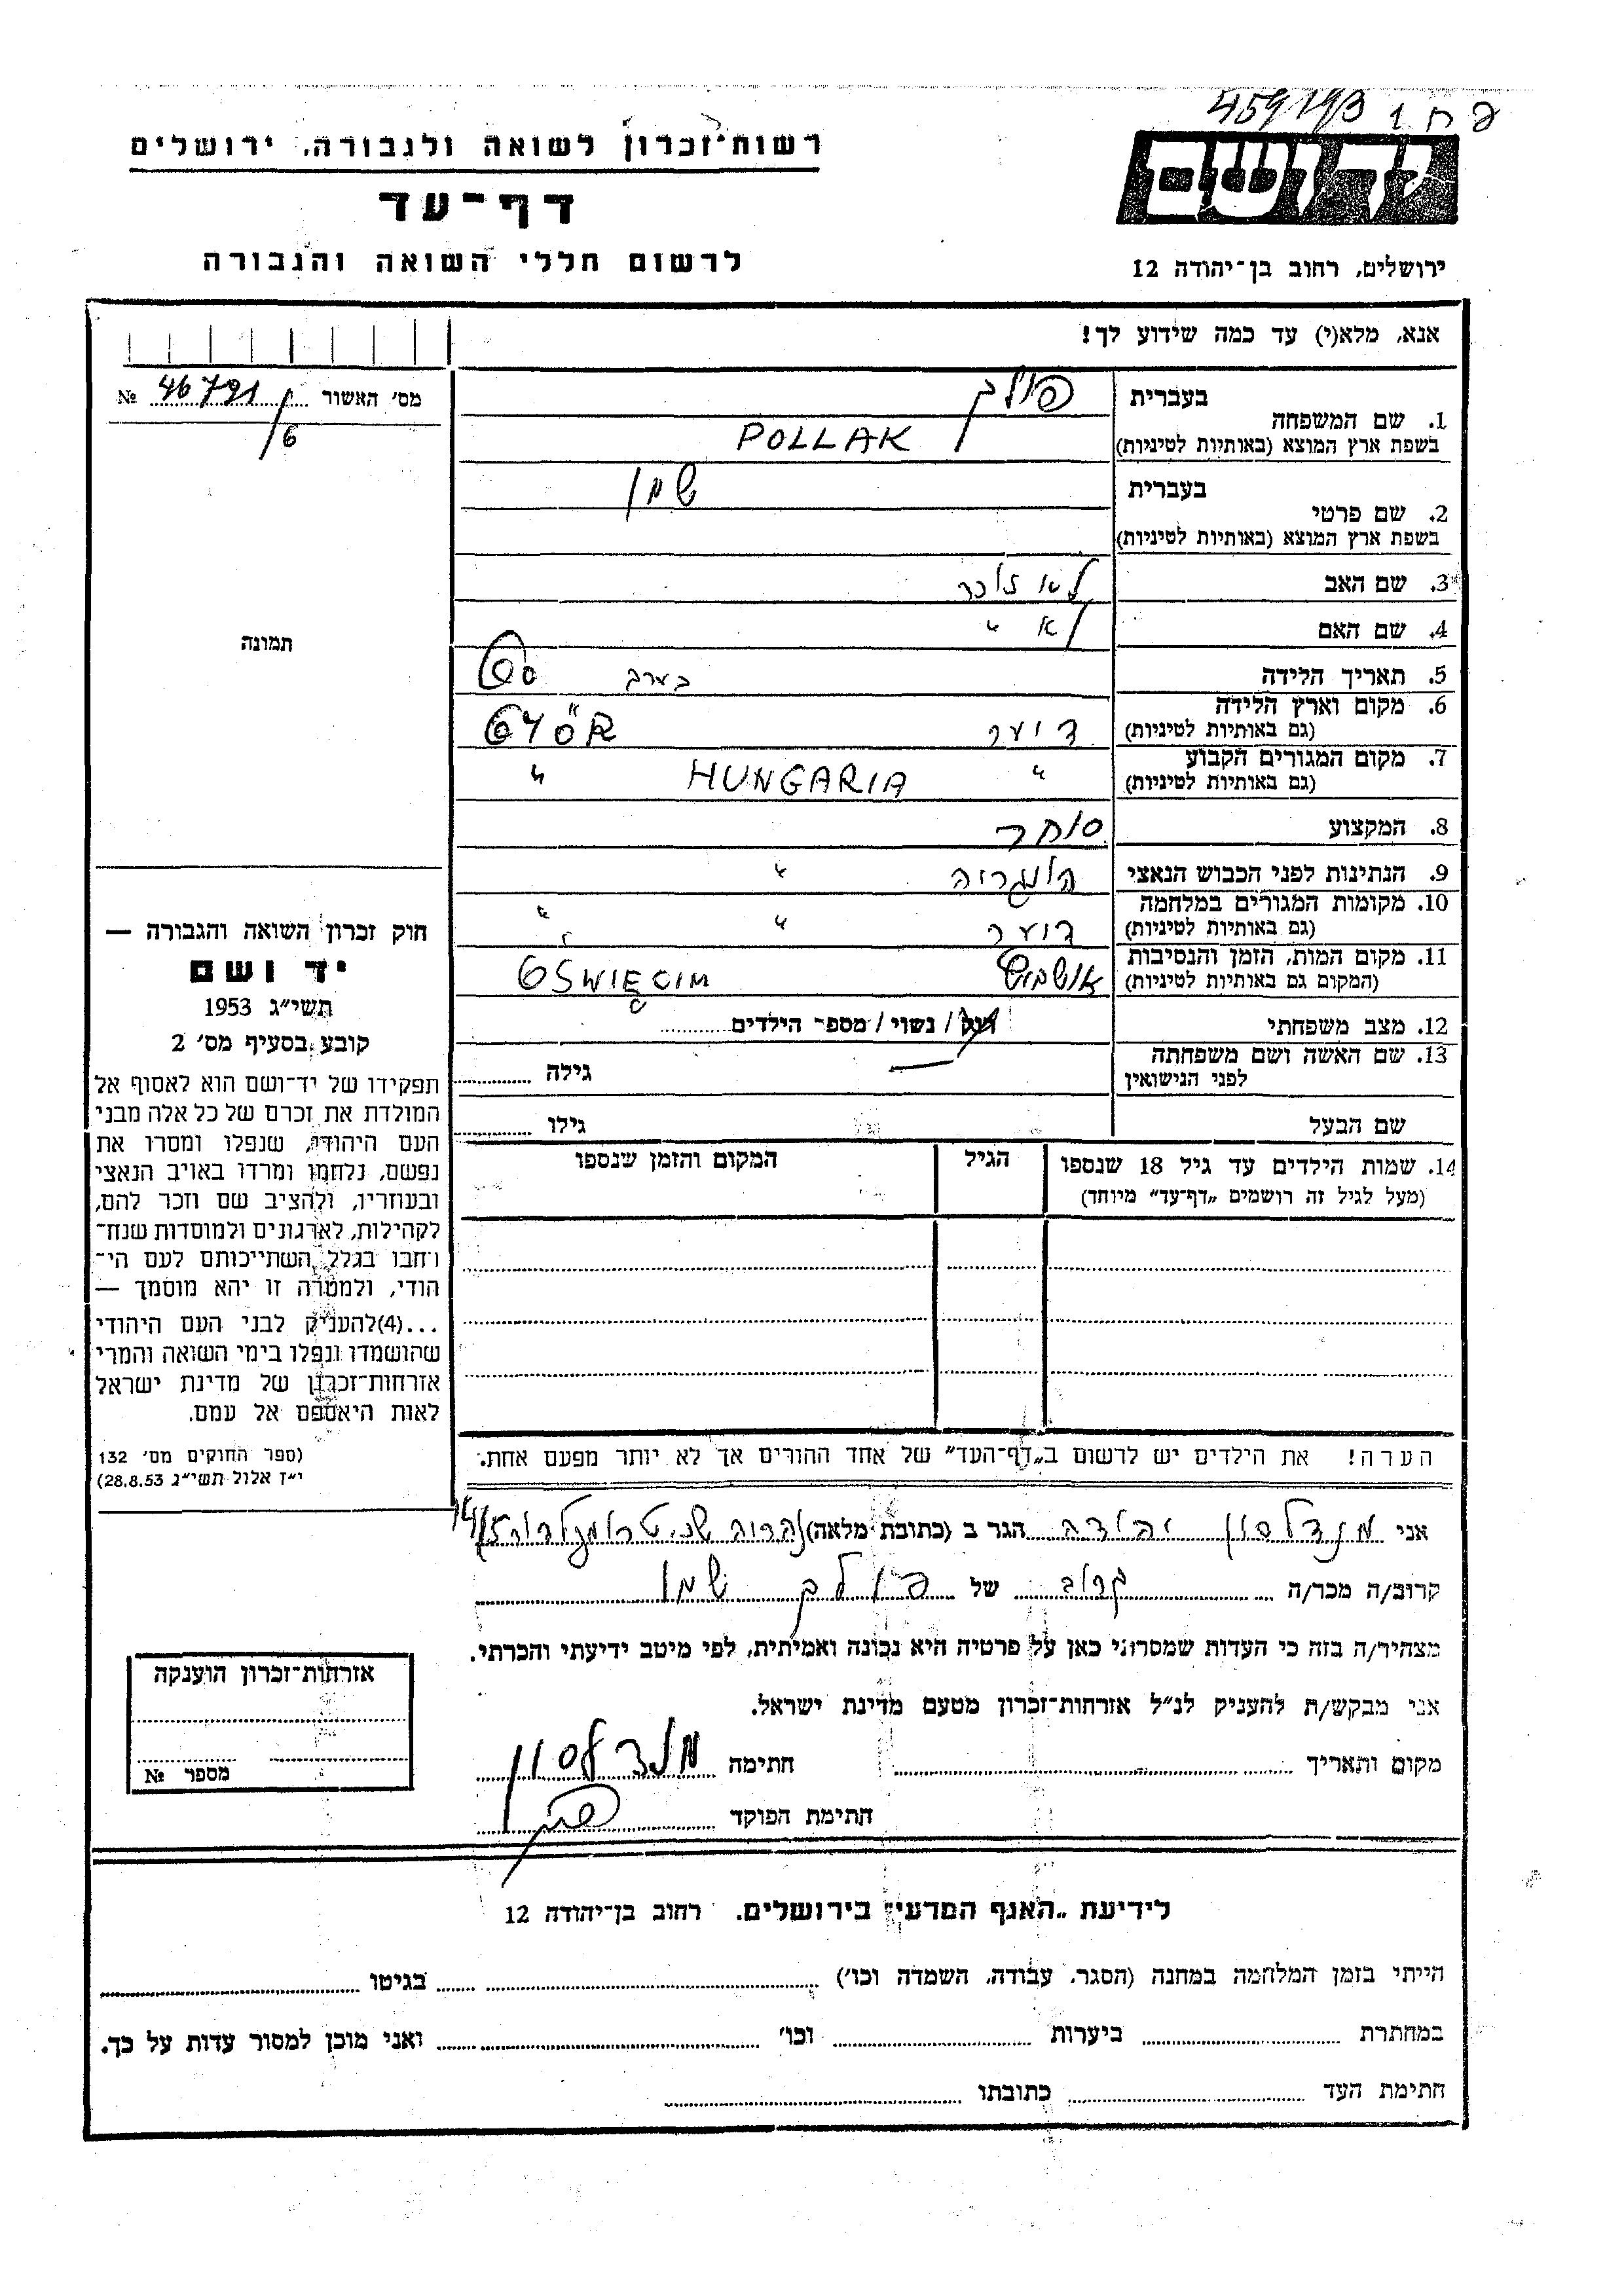 459193 פ ח 1
רשות־זכרון לשואה ולגבורה, ירושלים
דף־עד
לרשום חללי השואה והגבורה
יד ושם
ירושלים, רחוב בן־יהודה 12
אנא, מלא(י) עד כמה שידוע לך!
מס׳ האשור 46791 №
/6
תמונה
בעברית פולק
1. שם המשפחה
בשפת ארץ המוצא (באותיות לטיניות) POLLAK
בעברית
2. שם פרטי
בשפת ארץ המוצא (באותיות לטיניות)
3. שם האב לא
4. שם האם לא "
5. תאריך הלידה בערך
6. מקום וארץ הלידה
(גם באותיות לטיניות) דיער GYÖR
7. מקום המגורים הקבוע
(גם באותיות לטיניות) " HUNGARIA "
8. המקצוע סוחר
9. הנתינות לפני הכבוש הנאצי הונגריה "
10. מקומות המגורים במלחמה
(גם באותיות לטיניות) דיער " "
11. מקום המות, הזמן והנסיבות
(המקום גם באותיות לטיניות) אושביץ OSWIĘCIM
12. מצב משפחתי רוק / נשוי / מספר הילדים
13. שם האשה ושם משפחתה
לפני הנישואין — גילה
שם הבעל גילו
14. שמות הילדים עד גיל 18 שנספו הגיל המקום והזמן שנספו
(מעל לגיל זה רושמים „דף־עד״ מיוחד)
הערה! את הילדים יש לרשום ב„דף־העד״ של אחד ההורים אך לא יותר מפעם אחת.
חוק זכרון השואה והגבורה —
יד ושם
תשי״ג 1953
קובע בסעיף מס׳ 2
תפקידו של יד־ושם הוא לאסוף אל
המולדת את זכרם של כל אלה מבני
העם היהודי, שנפלו ומסרו את
נפשם, נלחמו ומרדו באויב הנאצי
ובעוזריו, ולהציב שם וזכר להם,
לקהילות, לארגונים ולמוסדות שנח־
רחבו בגלל השתייכותם לעם הי־
הודי, ולמטרה זו יהא מוסמך —
...(4)להעניק לבני העם היהודי
שהושמדו ונפלו בימי השואה והמרי
אזרחות־זכרון של מדינת ישראל
לאות היאספם אל עמם.
(ספר החוקים מס׳ 132
י״ז אלול תשי״ג 28.8.53)
אני מנדלסון יהודה הגר ב (כתובת מלאה)
קרוב/ה מכר/ה קרוב של פולק
מצהיר/ה בזה כי העדות שמסרתי כאן על פרטיה היא נכונה ואמיתית, לפי מיטב ידיעתי והכרתי.
אני מבקש/ת להעניק לנ״ל אזרחות־זכרון מטעם מדינת ישראל.
מקום ותאריך חתימה מנדלסון
חתימת הפוקד
אזרחות־זכרון הוענקה
מספר №
לידיעת „האגף המדעי״ בירושלים. רחוב בן־יהודה 12
הייתי בזמן המלחמה במחנה (הסגר, עבודה, השמדה וכו׳) בגיטו
במחתרת ביערות וכו׳ ואני מוכן למסור עדות על כך.
חתימת העד כתובתו